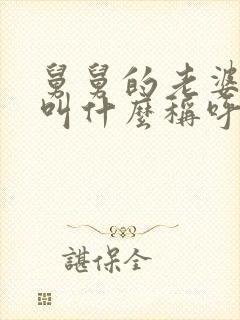 舅舅的老婆
叫什麼稱呼
諶保全